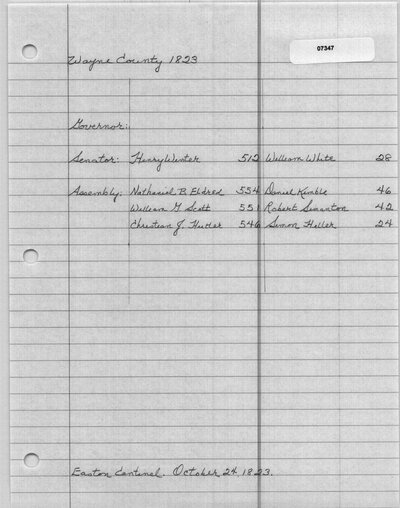 07347
Wayne County 1823
Governor:
Senator: Henry Winter 512 William White 28
Assembly: Nathaniel B. Eldred 554 Daniel Kimble 46
William G. Scott 551 Robert Simanton 42
Christian J. Hutter 546 Simon Heller 24
Easton Centinel. October 24, 1823.